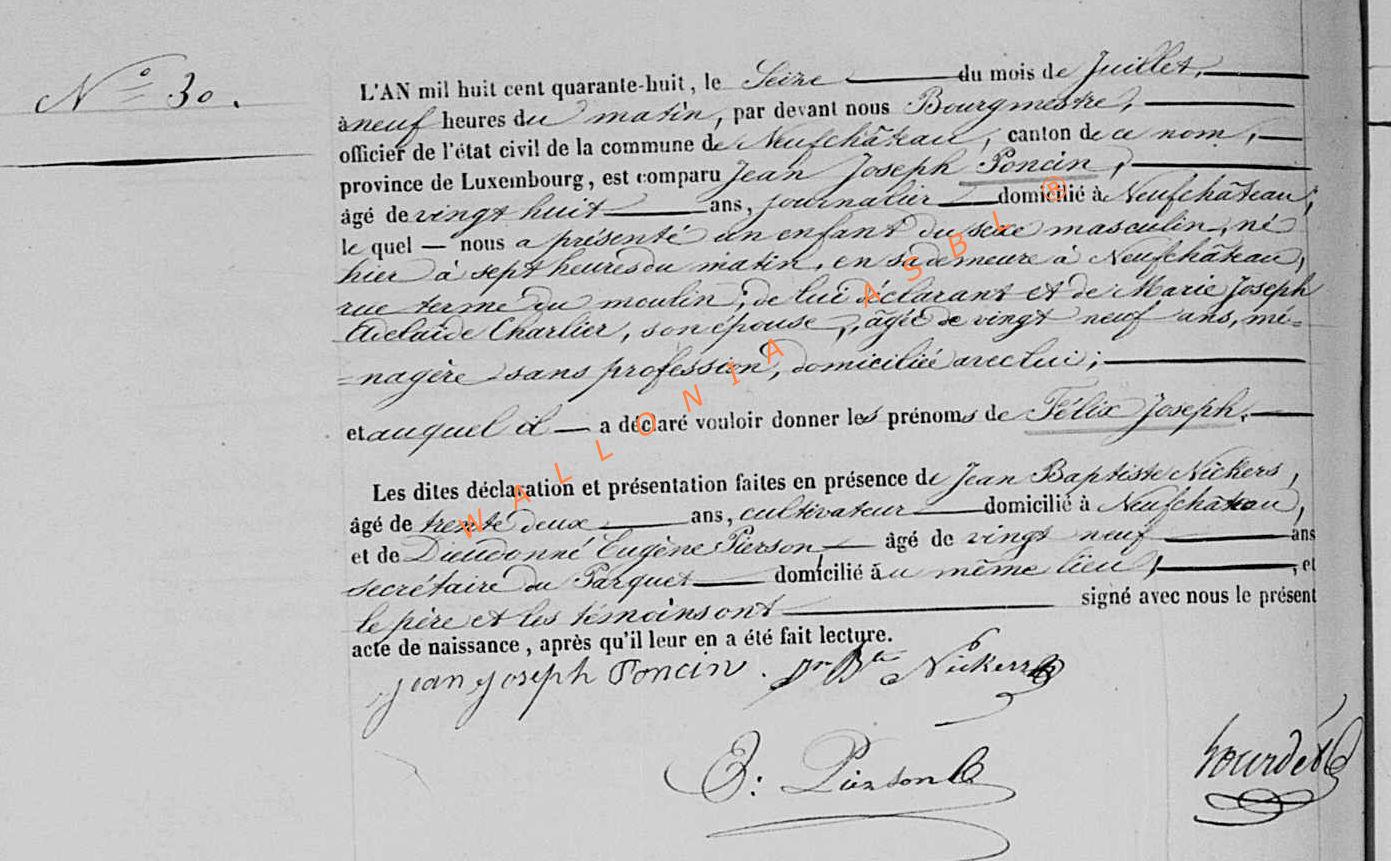 N° 30.
L'AN mil huit cent quarante-huit, le Seize du mois de Juillet,
à neuf heures du matin, par devant nous Bourgmestre,
officier de l'état civil de la commune de Neufchâteau, canton de ce nom,
province de Luxembourg, est comparu Jean Joseph Poncin,
âgé de vingt huit ans, journalier domicilié à Neufchâteau,
le quel — nous a présenté un enfant du sexe masculin, né
hier à sept heures du matin, en sa demeure à Neufchâteau,
rue terme du moulin, de lui déclarant et de Marie Joseph
Adelaïde Charlier, son épouse, âgée de vingt neuf ans, mé=
=nagère sans profession, domiciliée avec lui;
et auquel il — a déclaré vouloir donner les prénoms de Félix Joseph.
Les dites déclaration et présentation faites en présence de Jean Baptiste Nickers,
âgé de trente deux ans, cultivateur domicilié à Neufchâteau,
et de Dieudonné Eugène Pierson âgé de vingt neuf ans
secrétaire du Parquet domicilié au même lieu, , et
le père et les témoins ont signé avec nous le présent
acte de naissance, après qu'il leur en a été fait lecture.
Jean Joseph Poncin. Jn Bte Nickers
E: Pierson
Hourdet
WALLONIA ASBL ®